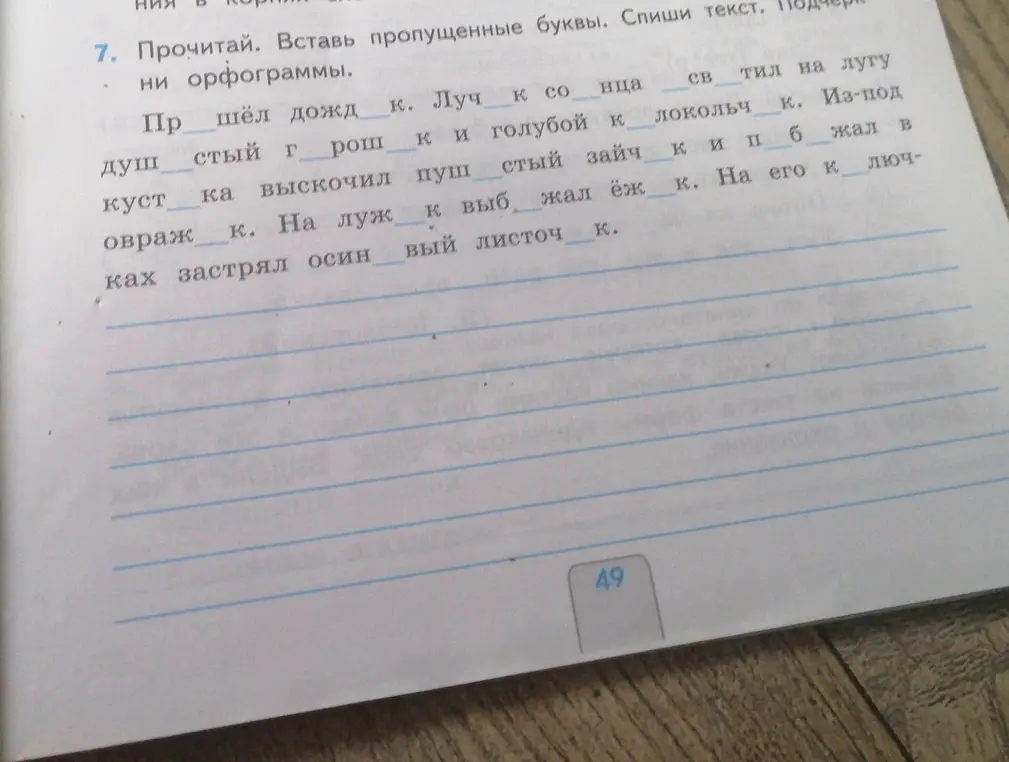 7. Прочитай. Вставь пропущенные буквы. Спиши текст. Подчерк-
ни орфограммы.
Пр__шёл дожд__к. Луч__к со__нца __св__тил на лугу
душ__стый г__рош__к и голубой к__локольч__к. Из-под
куст__ка выскочил пуш__стый зайч__к и п__б__жал в
овраж__к. На луж__к выб__жал ёж__к. На его к__люч-
ках застрял осин__вый листоч__к.
49